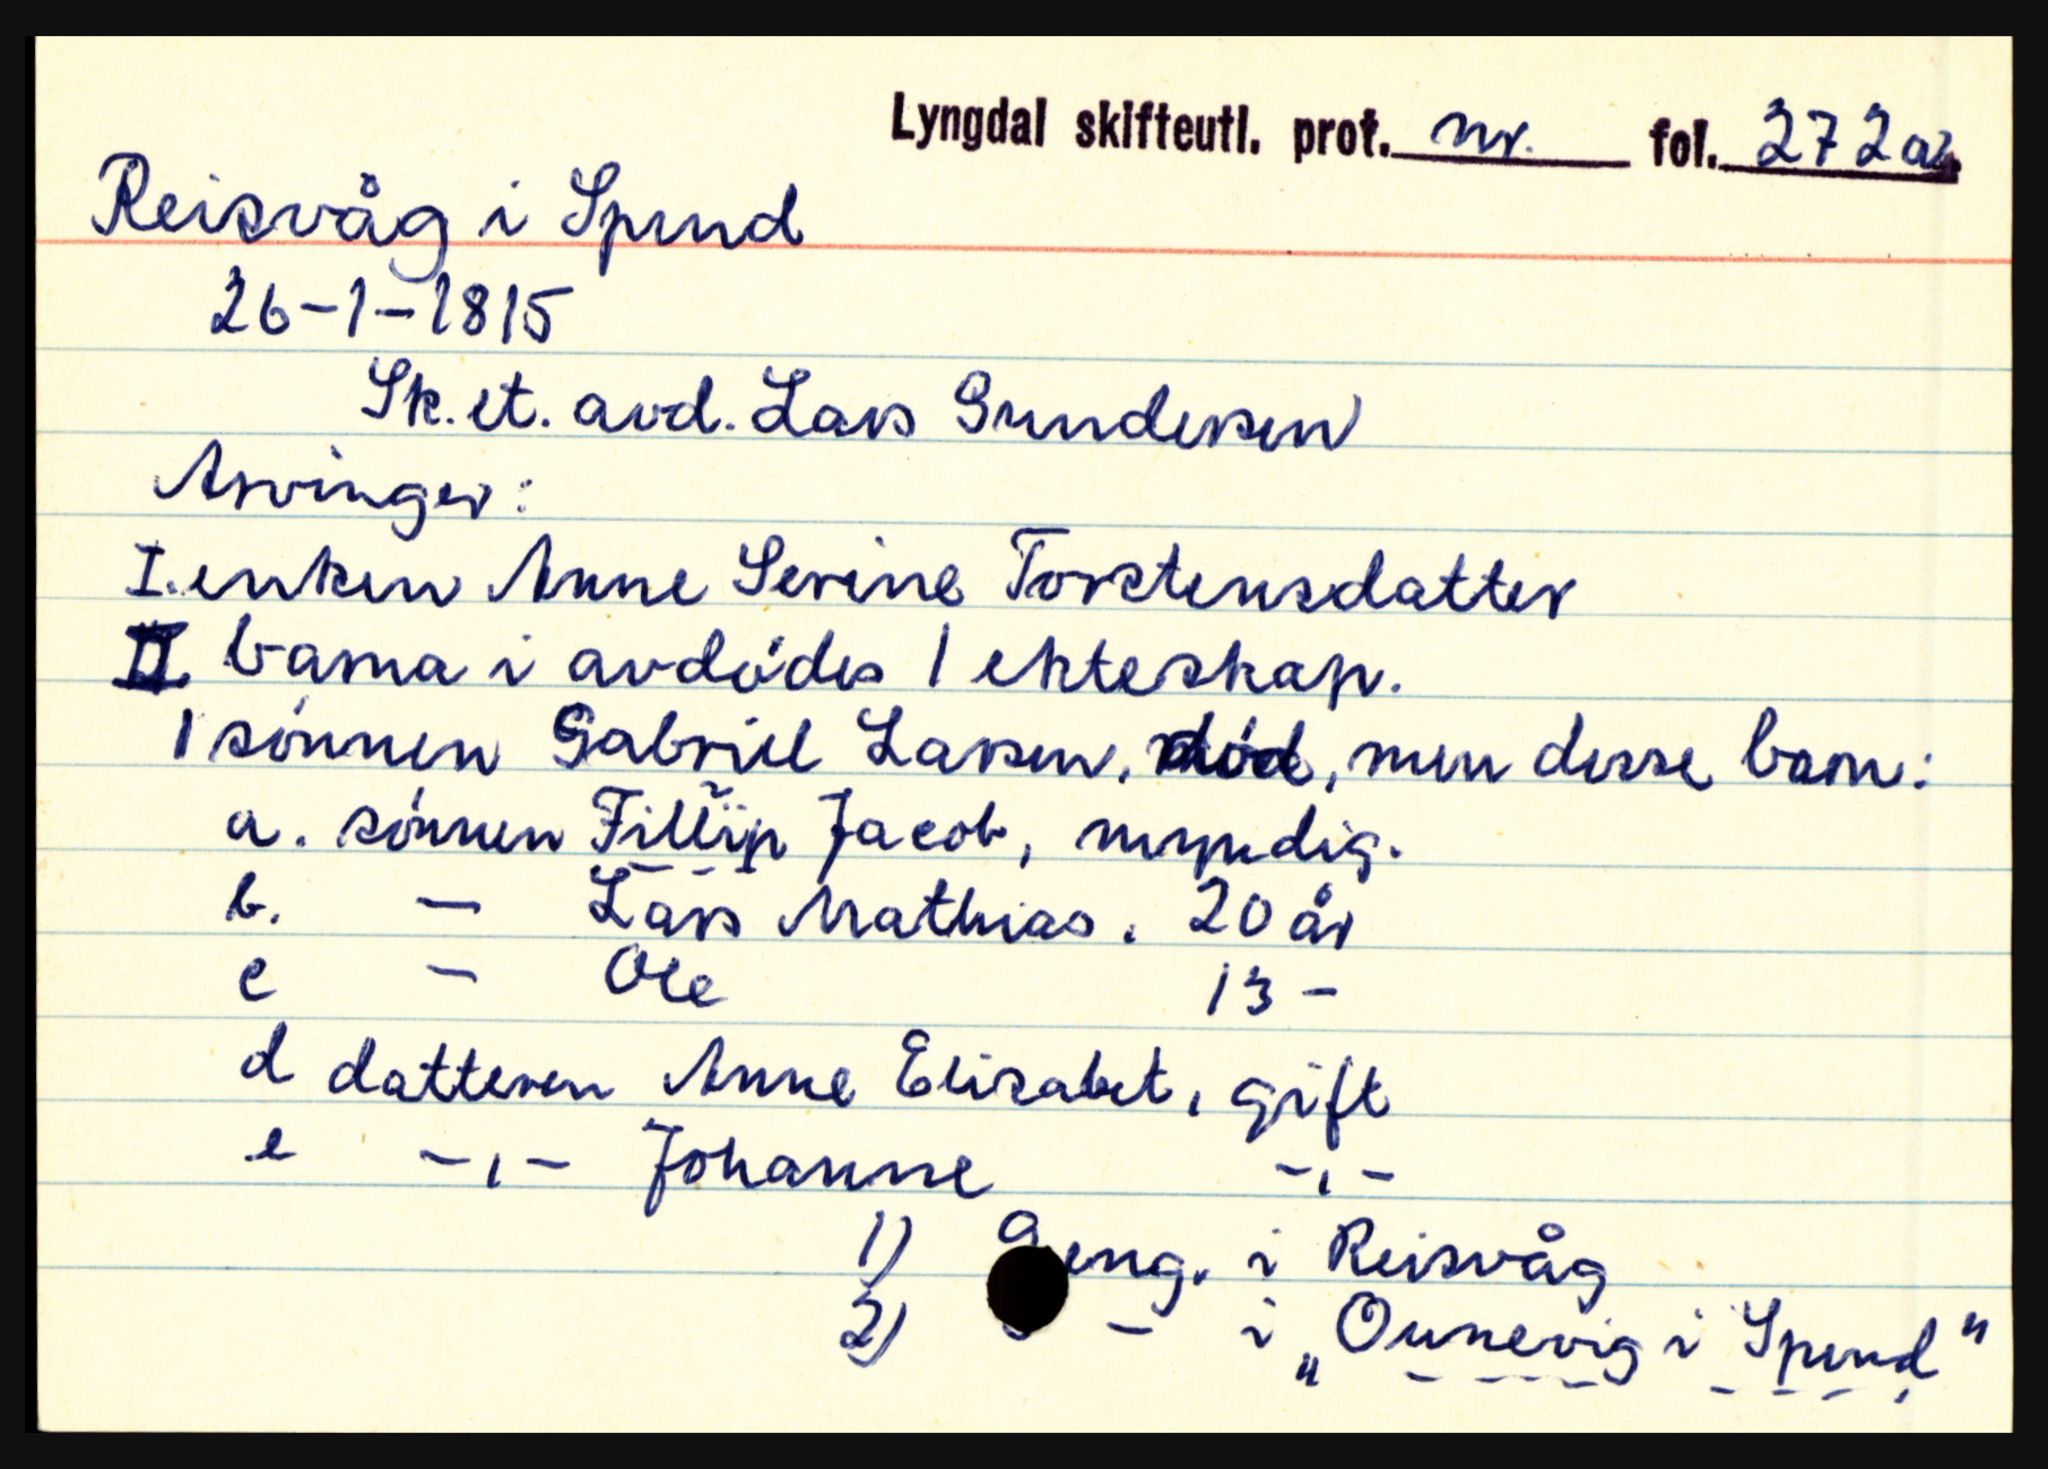 Lyngdal skifteutl. prot. nr. fol. 272a
Reisvåg i Spind
26-1-1815
Sk. et. avd. Lars Gundersen
Arvinger:
I. enken Anne Serine Torstensdatter
II barna i avdødes 1 ekteskap.
1 sønnen Gabriel Larsen, død, men desse barn:
a. sønnen Fillip Jacob, myndig.
b. - Lars Mathias. 20 år
c - Ole 13 -
d datteren Anne Elisabet, gift
e -,- Johanne -,-
1) Geng. i Reisvåg
2) - i „Ounevig i Spind"